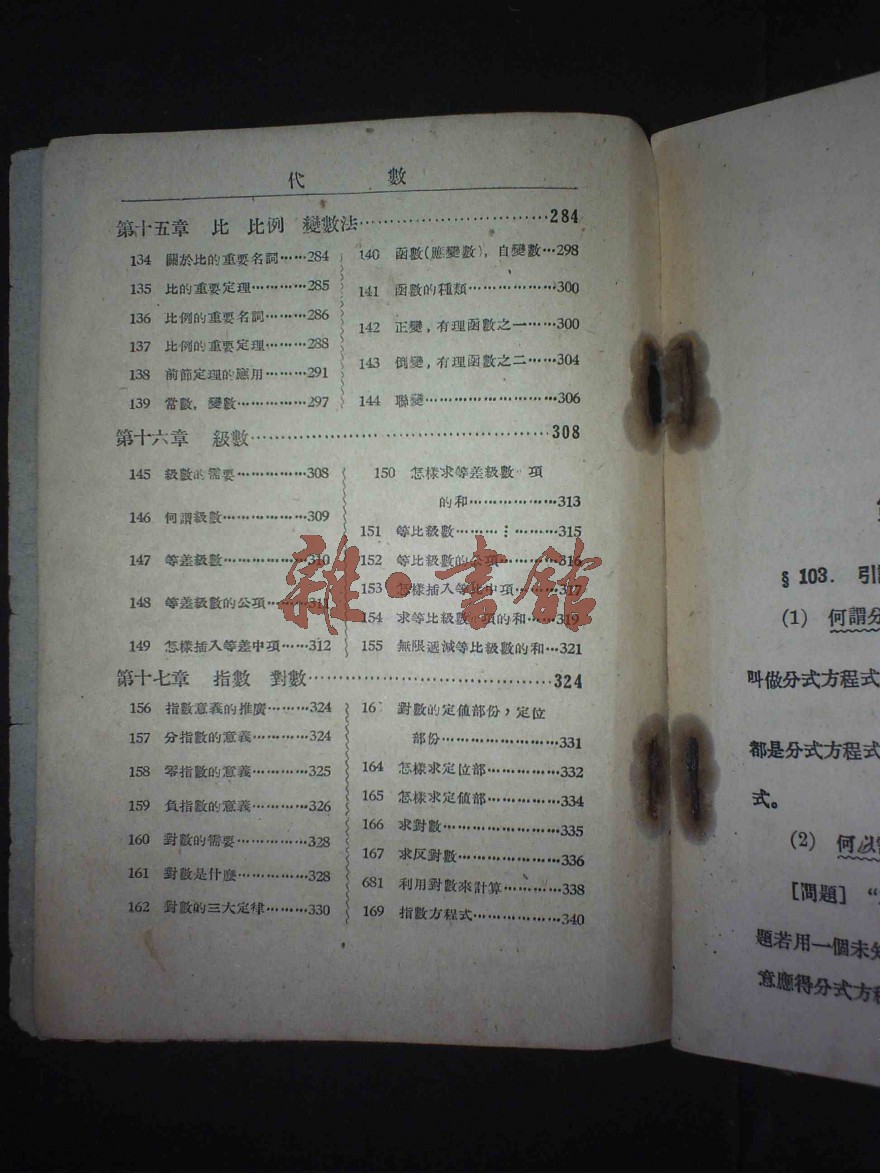 代 數
第十五章 比 比例 變數法………………………284
134 關於比的重要名詞……284
135 比的重要定理…………285
136 比例的重要名詞………286
137 比例的重要定理………288
138 前節定理的應用………291
139 常數，變數……………297
140 函數(應變數)，自變數…298
141 函數的種類………………300
142 正變，有理函數之一……300
143 倒變，有理函數之二……304
144 聯變………………………306
第十六章 級數……………………………………308
145 級數的需要……………308
146 何謂級數………………309
147 等差級數………………310
148 等差級數的公項………311
149 怎樣插入等差中項……312
150 怎樣求等差級數 項
的和………………313
151 等比級數…………………315
152 等比級數的公項…………316
153 怎樣插入等比中項………317
154 求等比級數 項的和……319
155 無限遞減等比級數的和…321
第十七章 指數 對數……………………………324
156 指數意義的推廣………324
157 分指數的意義…………324
158 零指數的意義…………325
159 負指數的意義…………326
160 對數的需要……………328
161 對數是什麼……………328
162 對數的三大定律………330
16 對數的定值部份，定位
部份…………………331
164 怎樣求定位部……………332
165 怎樣求定值部……………334
166 求對數……………………335
167 求反對數…………………336
681 利用對數來計算…………338
169 指數方程式………………340
雜·書館
§ 103. 引
(1) 何謂分
叫做分式方程式
都是分式方程式
式。
(2) 何以
[問題] “
題若用一個未知
意應得分式方程